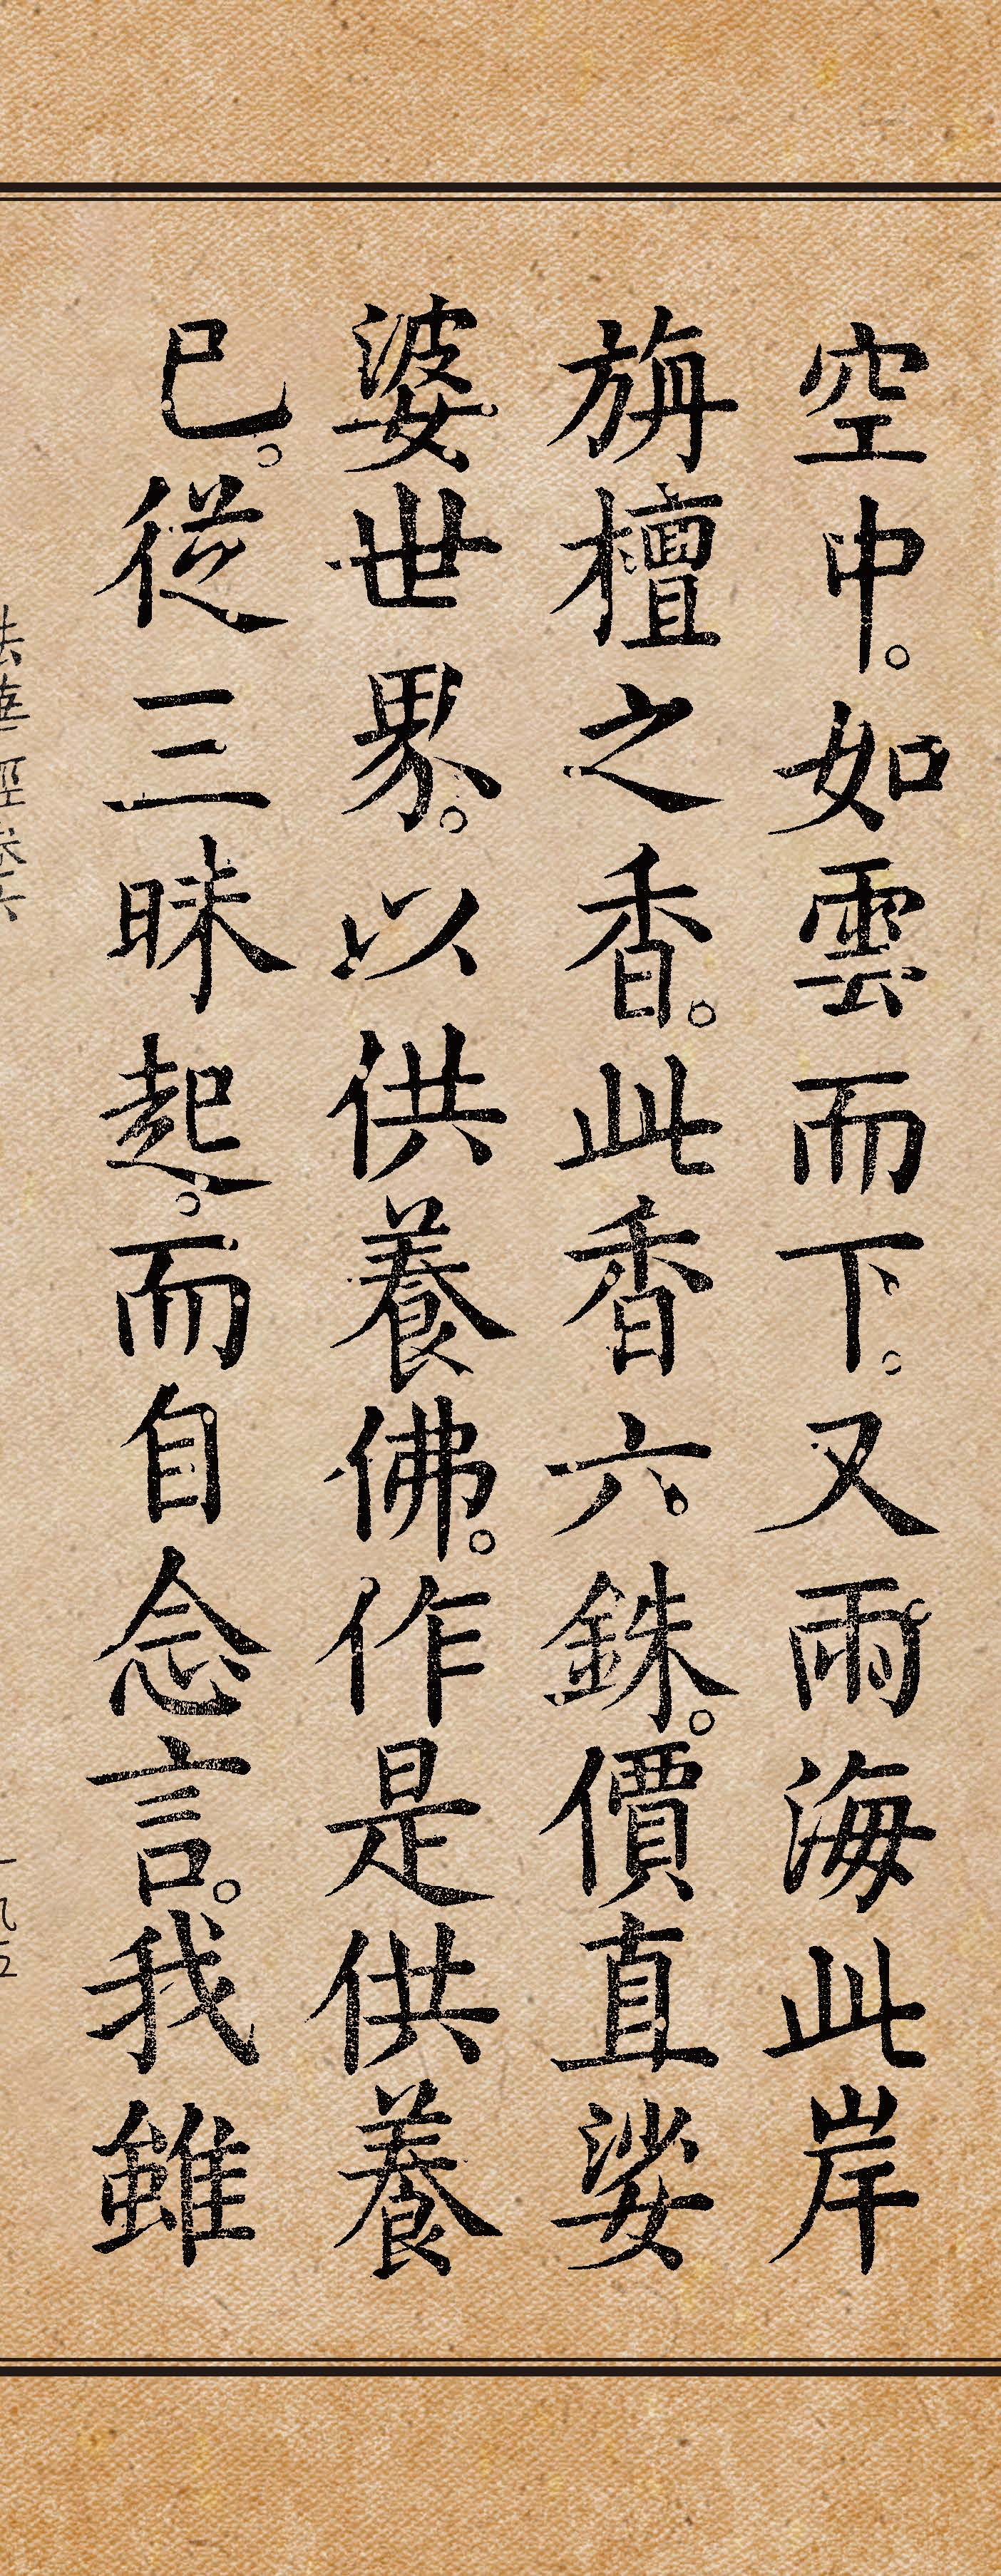 空中。如雲而下。又雨海此岸
旃檀之香。此香六銖。價直娑
婆世界。以供養佛。作是供養
已。從三昧起。而自念言。我雖
法華經卷六
一九五